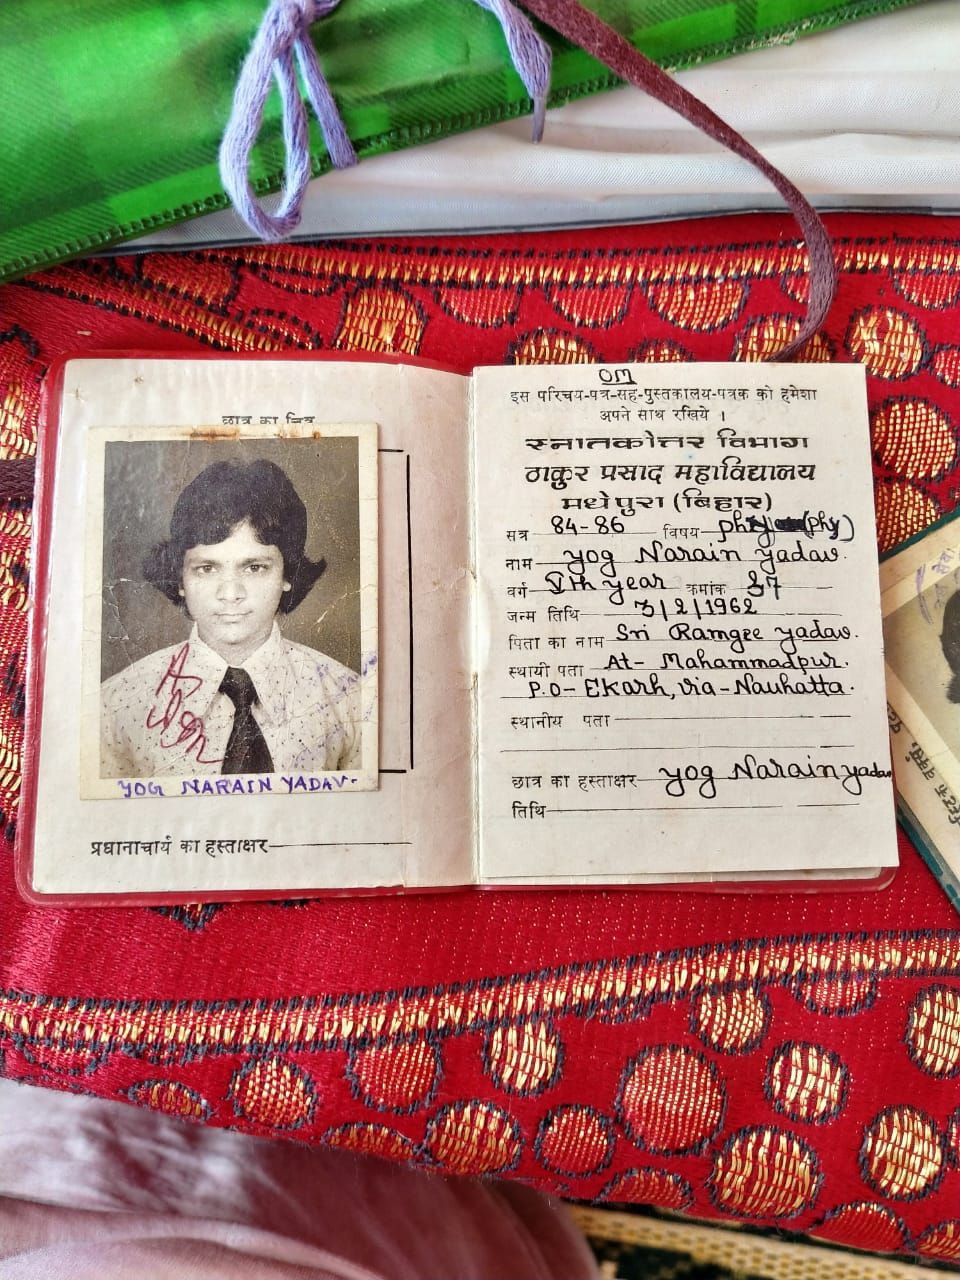 छात्र का चित्र
YOG NARAIN YADAV-
प्रधानाचार्य का हस्ताक्षर
OM
इस परिचय-पत्र-सह-पुस्तकालय-पत्रक को हमेशा
अपने साथ रखिये ।
स्नातकोत्तर विभाग
ठाकुर प्रसाद महाविद्यालय
मधेपुरा (बिहार)
सत्र 84-86 विषय (Phy)
नाम Yog Narain Yadav.
वर्ग Vth year क्रमांक 37
जन्म तिथि 3/2/1962
पिता का नाम Sri Ramgee Yadav.
स्थायी पता At- Mahammadpur.
P.O- Ekarh, Via- Nauhatta.
स्थानीय पता
छात्र का हस्ताक्षर Yog Narain Yadav
तिथि